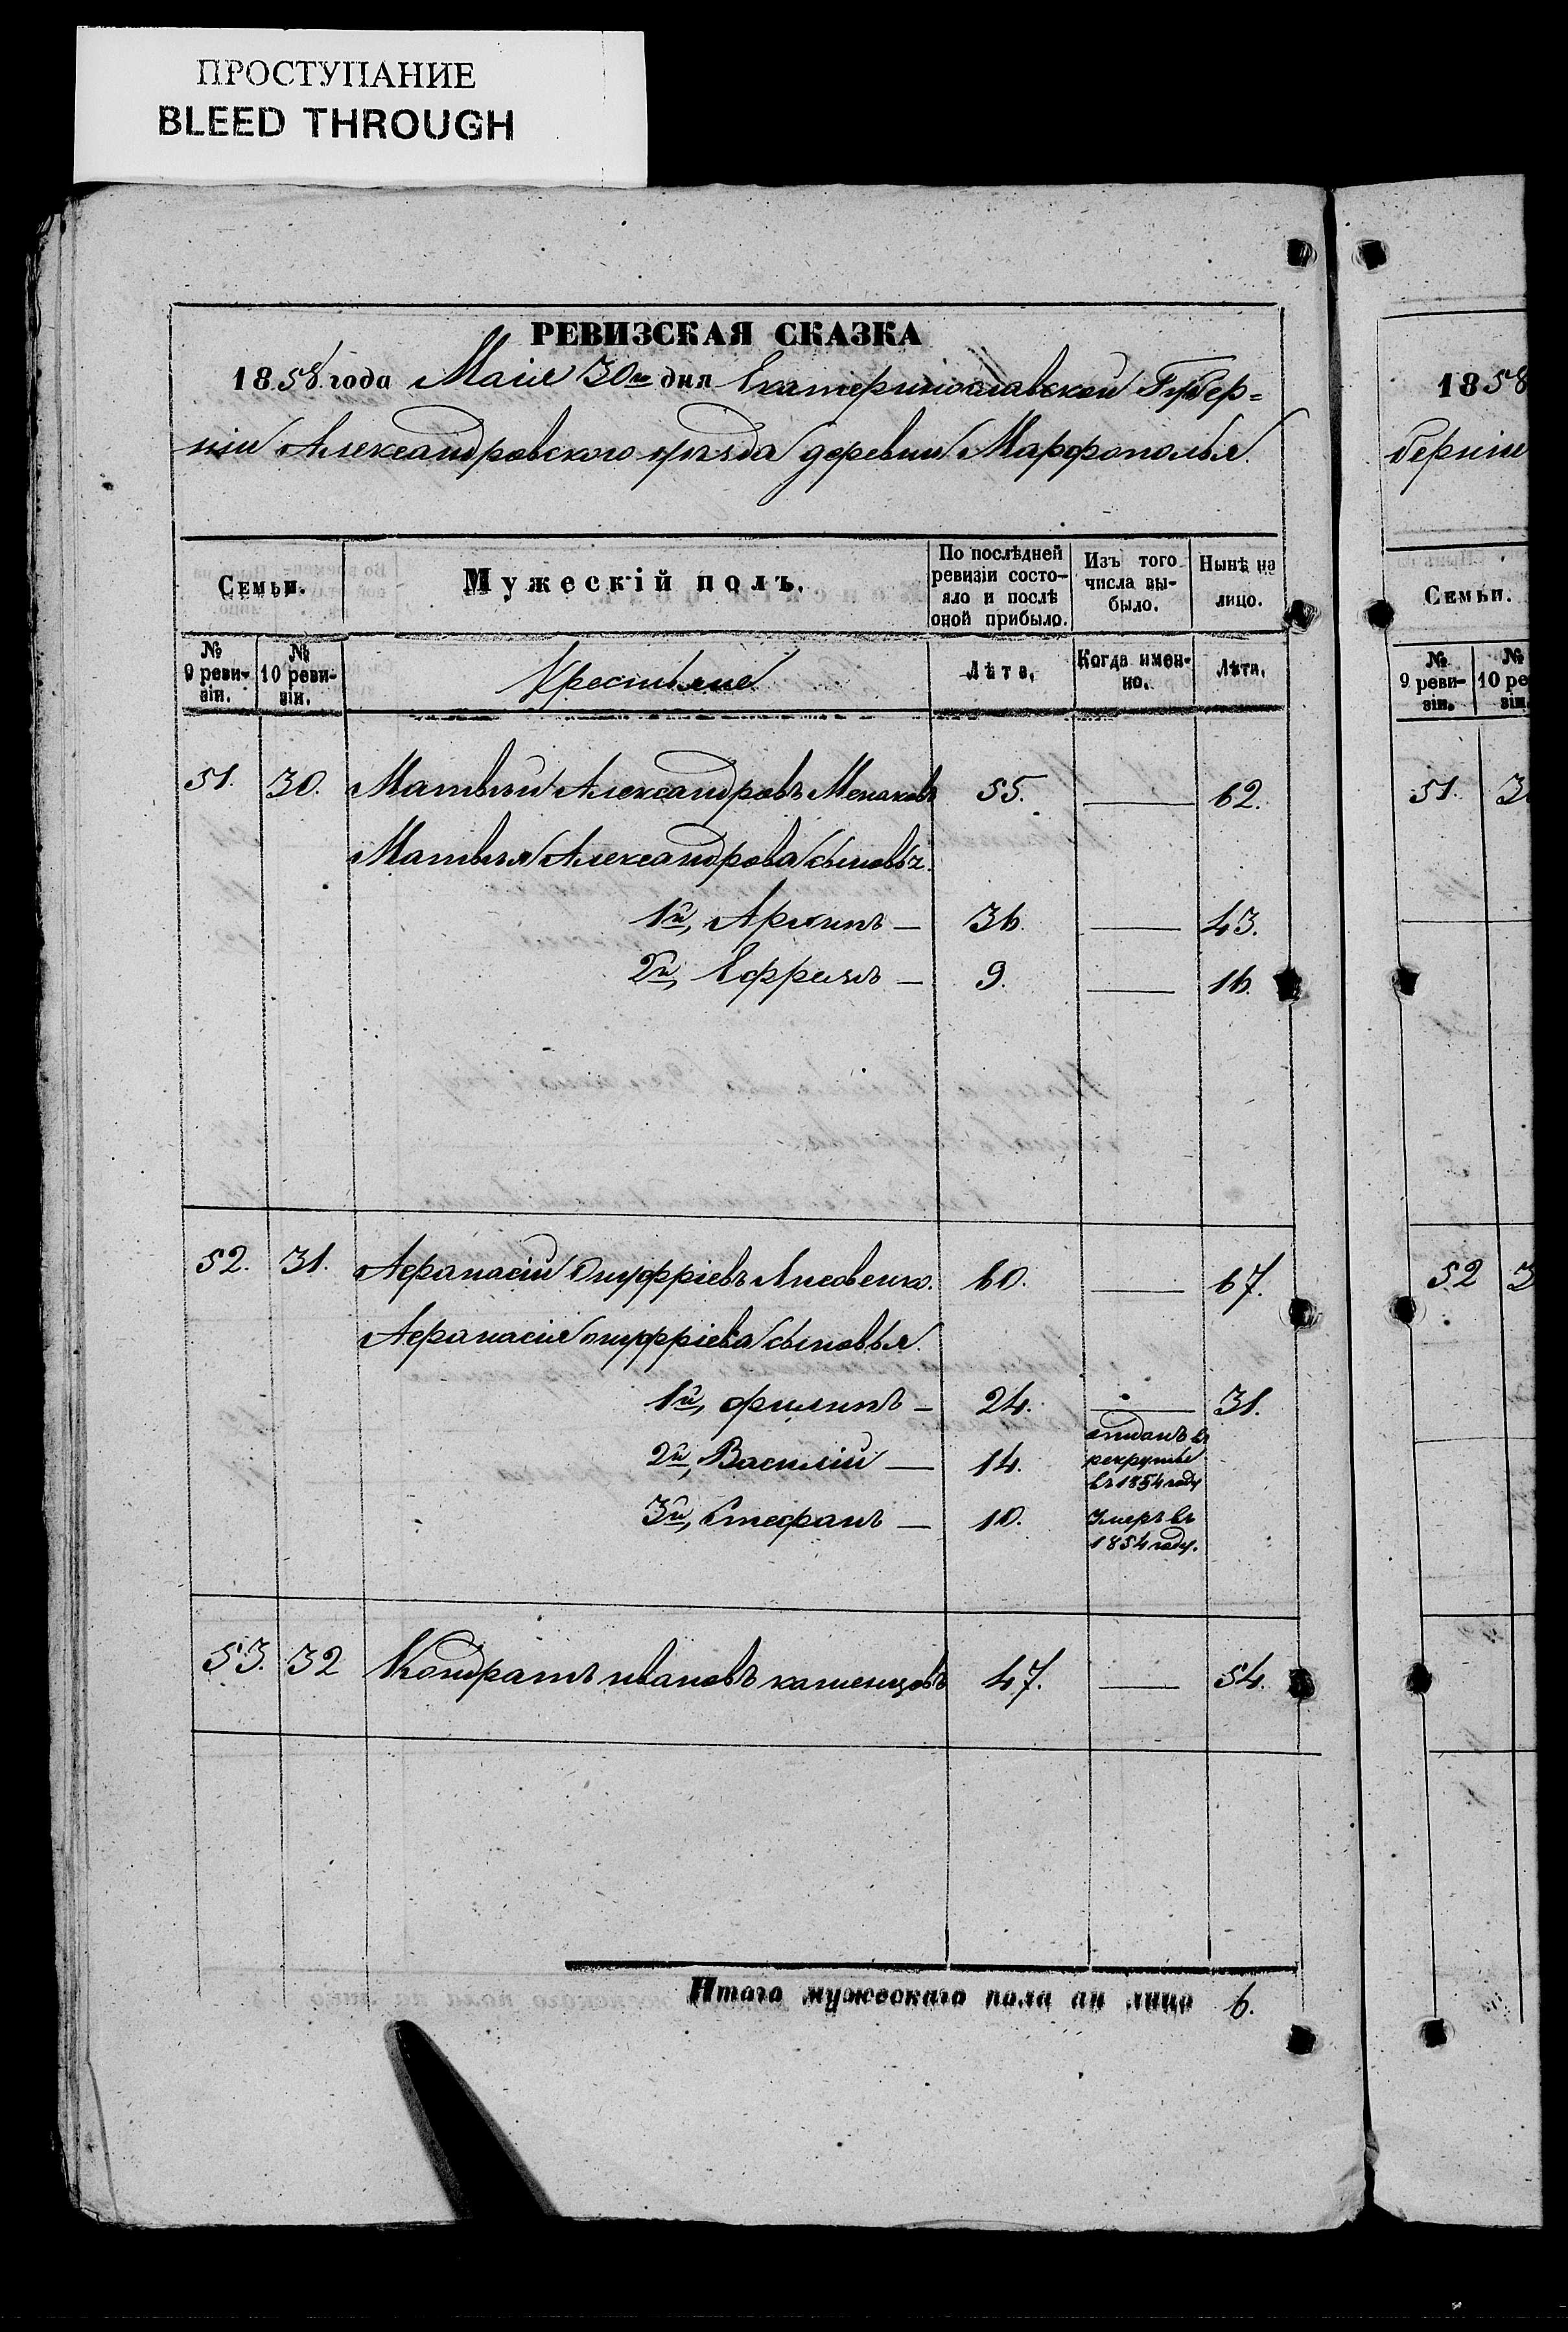 ПРОСТУПАНИЕ
BLEED THROUGH
РЕВИЗСКАЯ СКАЗКА
1858 года Маія 30го дня Екатеринославской Губер=
ніи Александровского уѣзда деревни Марфополья.
Семьи.
Мужескій полъ.
По послѣдней ревизіи состо-яло и послѣ оной прибыло.
Изъ того числа вы-было.
Нынѣ на лицо.
№ 9 реви-зіи.
№ 10 реви-зіи.
Крестьяне
Лѣта.
Когда имен-но.
Лѣта.
51. 30. Матвѣй Александровъ 55. — 62.
Матвѣя Александрова сыновья.
1й, Архипъ — 36. — 43.
2й, Ефримъ — 9. — 16.
52. 31. Афанасій Онуфріевъ Лисовенко. 60. — 67.
Афанасія Онуфріева сыновья.
1й, Филипъ — 24. — 31.
2й, Василій — 14. отданъ въ рекруты въ 1854 году
3й, Стефанъ — 10. Умеръ въ 1854 году.
53. 32 Кондратъ Ивановъ 47. — 54.
Итого мужескаго пола ан лицо 6.
1858
берніи
Семьи.
№ 9 реви-зіи.
№ 10 ре зіи.
51. 3
52 3